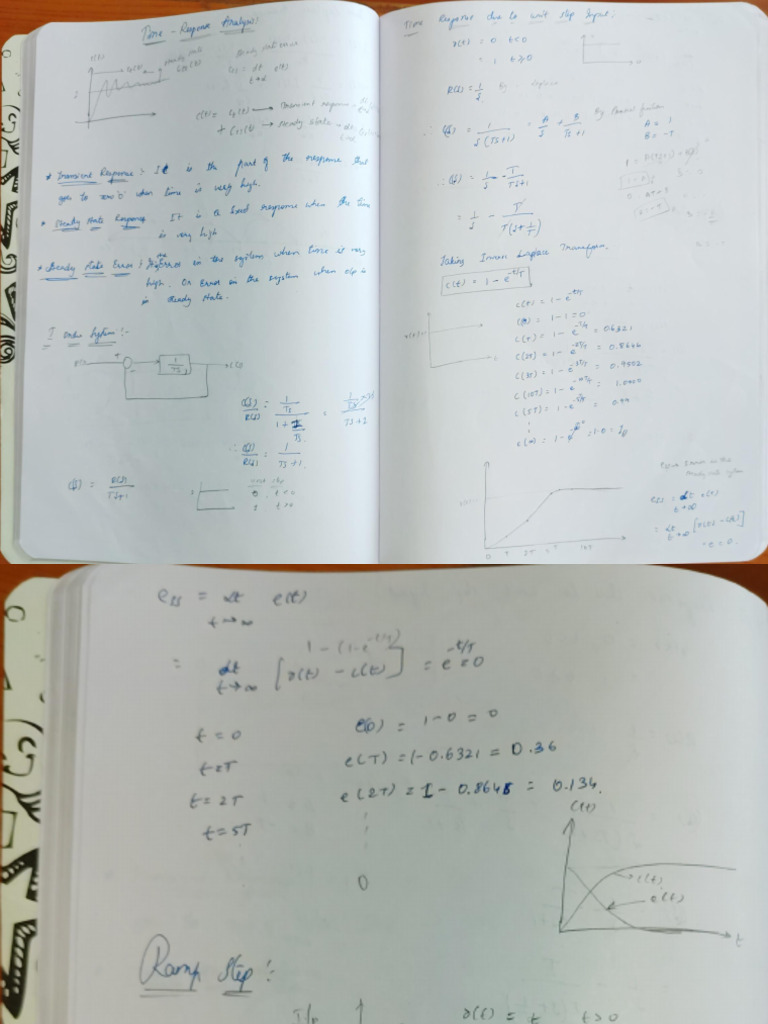 Time - Response Analysis:
r(t)
Steady state error
ess = Lt e(t)
t→∞
c(t) = ct(t) → Transient response
+ css(t) → Steady state
* Transient Response :- It is the part of the response that
goes to zero '0' when time is very high.
* Steady State Response It is a response when the time
is very high
* Steady State Error : Error in the system when time is very
high. Or Error in the system when o/p is
in steady state.
I order System :-
+
-
1/TS
C(S)/R(S) = (1/TS)/(1+1/TS) = TS+1
∴ C(S)/R(S) = 1/(TS+1).
C(S) = R(S)/(TS+1)
0 t<0
1 t>0
Time Response due to unit step Input.
r(t) = 0 t<0
= 1 t≥0
R(S) = 1/S By
∴ C(S) = 1/(S(TS+1)) = A/S + B/(TS+1) By Partial fraction
A = 1
B = -T
∴ C(S) = 1/S - T/(TS+1)
= 1/S - T/(T(S+1/T))
Taking Inverse Laplace Transform.
c(t) = 1 - e^-t/T
c(t) = 1 - e^-t/T
c(0) = 1-1=0
c(T) = 1 - e^-T/T = 0.6321
c(2T) = 1 - e^-2T/T = 0.8646
c(3T) = 1 - e^-3T/T = 0.9502
c(5T) = 1 - e^-5T/T = 0.99
c(∞) = 1 - e^-∞ = 1-0 = 1
0 T 2T
ess = Error in the
steady state system
ess = Lt e(t)
t→∞
= Lt [r(t) - c(t)]
t→∞
= 0.
ess = Lt e(t)
t→∞
1 - (1-e^-t/T)
= Lt [r(t) - c(t)] = e^-t/T = 0
t→∞
t = 0 e(0) = 1-0 = 0
t=T e(T) = 1-0.6321 = 0.36
t= 2T e(2T) = 1 - 0.8648 = 0.134.
t= 5T
0
c(t)
c(t)
e(t)
t
Ramp Step :-
I/p
r(t) = t t>0